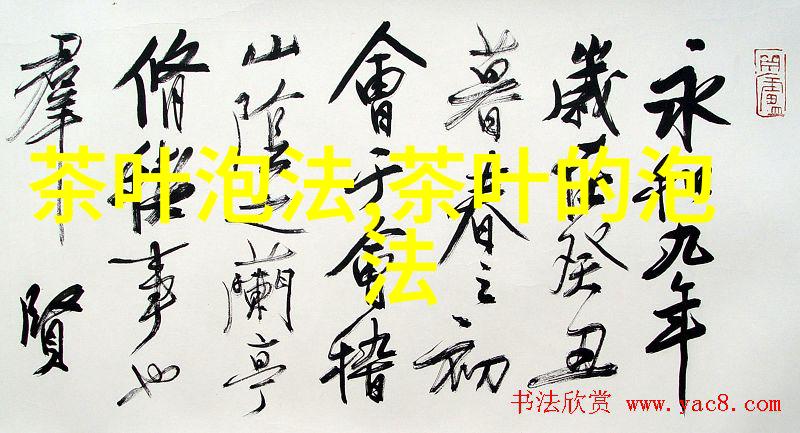 茶叶泡法,茶叶的泡
法
永和九年
歲在癸丑
暮春之初
會于會稽
山陰之蘭亭
脩稧事也
羣賢
书法欣赏 www.yac8.com